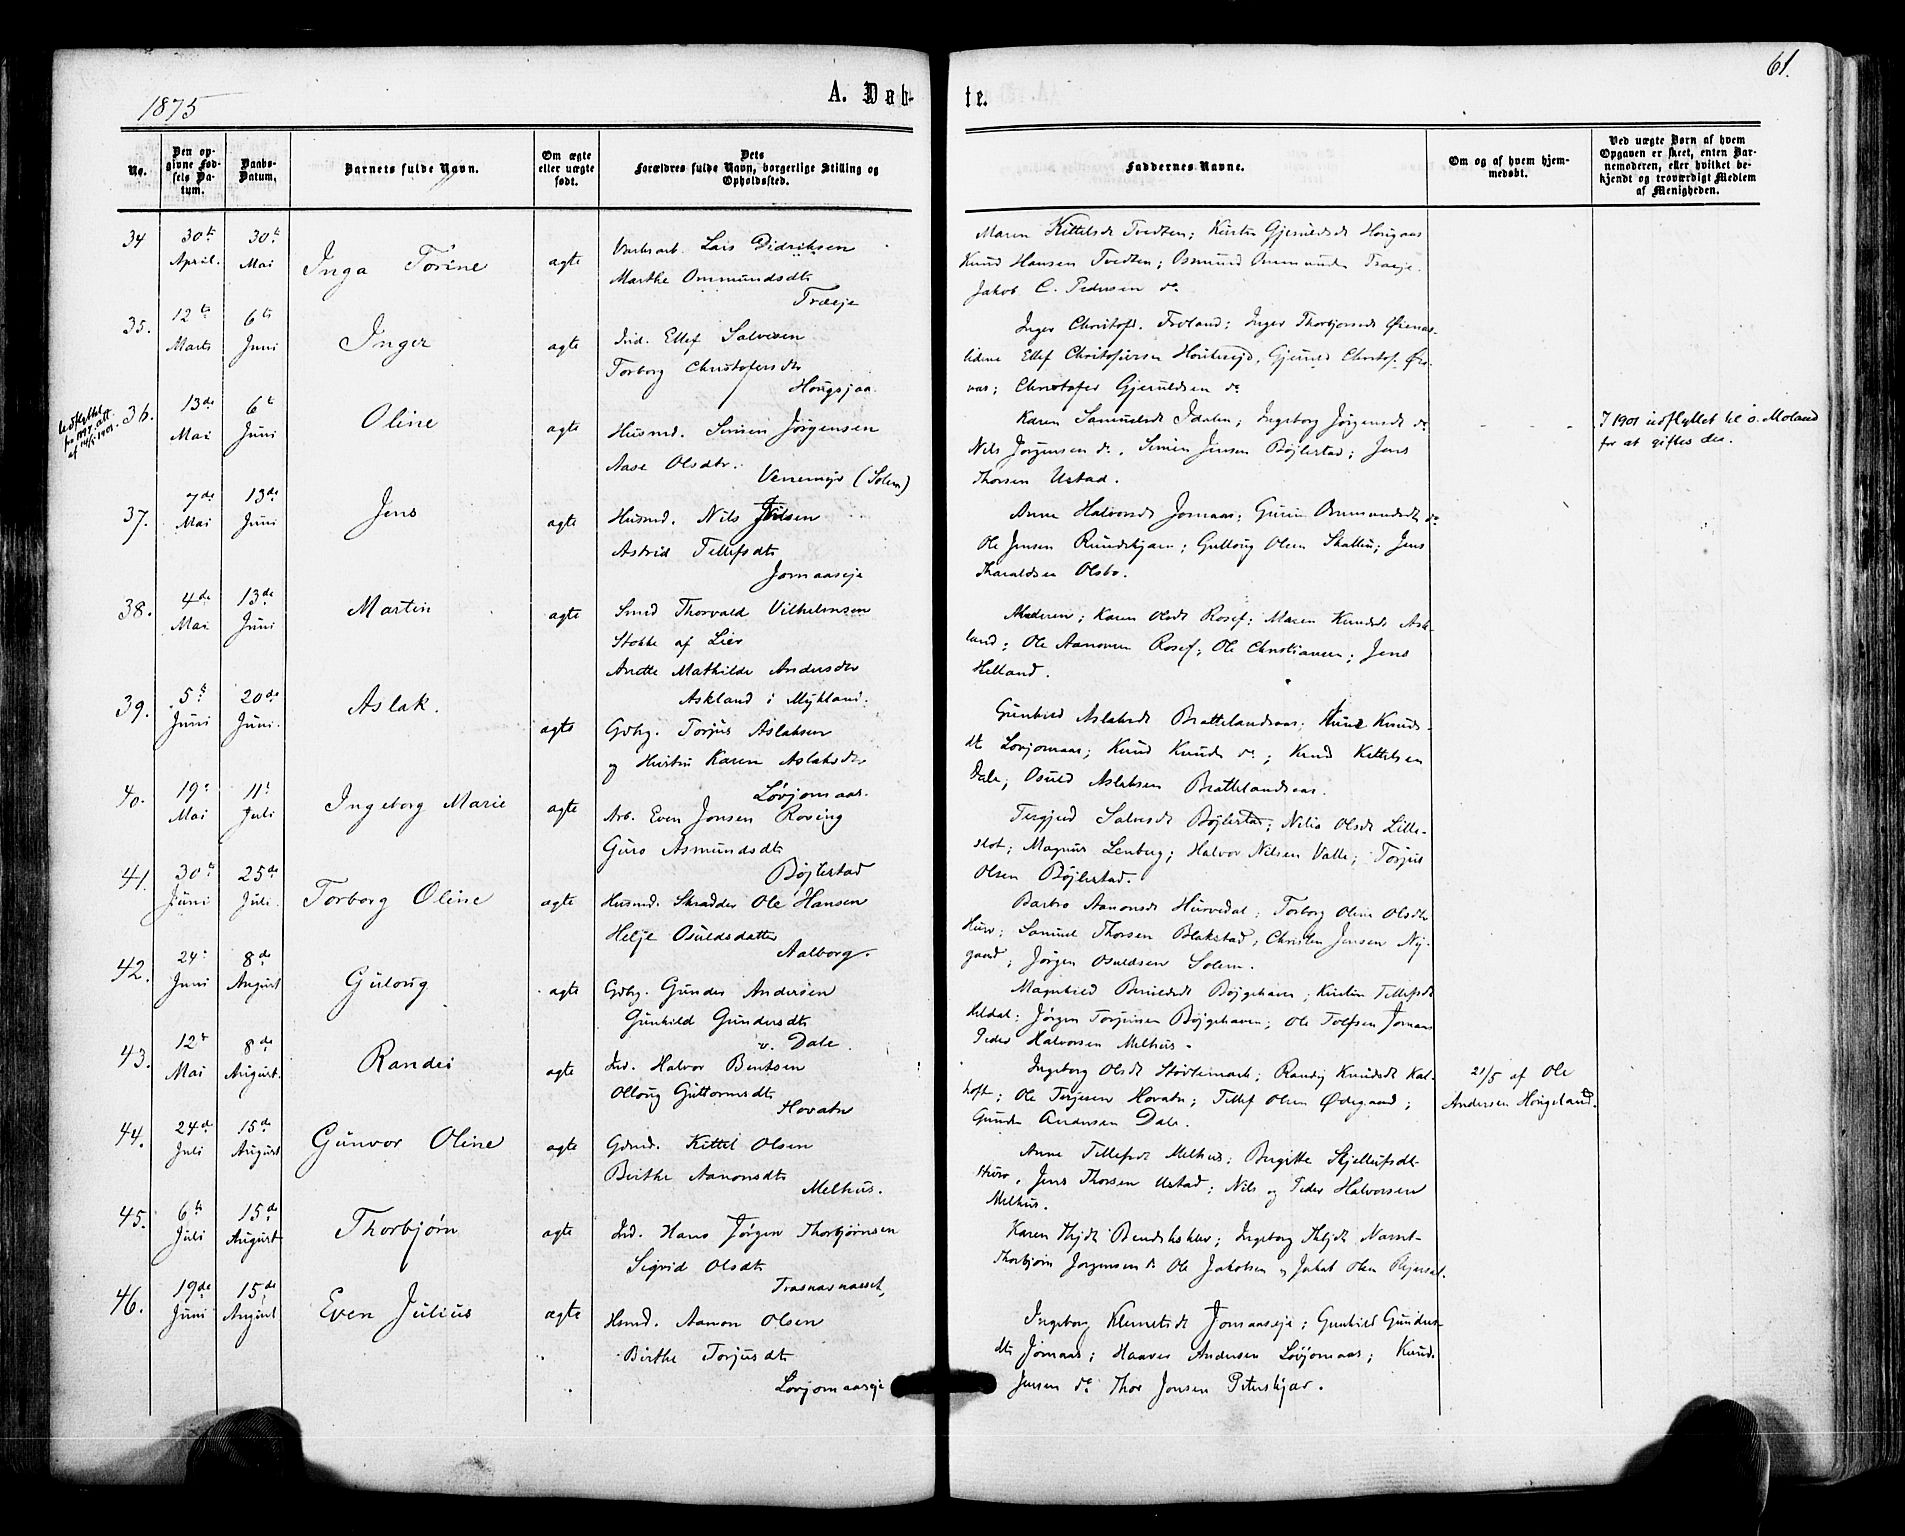 1875
A. Døb-
te.
61.
No.
Den op-
givne Fød-
sels Da-
tum.
Daabs-
Datum.
Barnets fulde Navn.
Om ægte
eller uægte
født.
Dets
Forældres fulde Navn, borgerlige Stilling og
Opholdssted.
Faddernes Navne.
Om og af hvem hjem-
medøbt.
Ved uægte Børn af hvem
Opgaven er skeet, enten Bar-
nemoderen, eller hvilket be-
kjendt og troværdigt Medlem
af Menigheden.
34
30te
April.
30te
Mai
Inga Torine
ægte
Lars Didriksen
Marthe Ommundsdt
Træeje
Maren Kittelsdt Tvedten; Kirsten Gjeruldsdt Hougaas
Knud Hansen Tvedten; Osmund Ommunds Træeje.
Jakob C. Pedersen do
35.
12te
Marts
6te
Juni
Inger
ægte
Ind. Ellef Salvesen
Torborg Christofersdtr
Hougsjaa.
Inger Christofs. Froland; Inger Thorbjørnsdt Øienas-
lidene Ellef Christofersen Gjeruld Christof. Øie-
nas; Christofer Gjeruldsen do
Udflyttet
36.
13de
Mai
6te
Juni
Oline
ægte
Husmd. Simen Jørgensen
Aase Olsdtr.
Venemyr (Solem)
Karen Samuelsdt Idalen; Ingeborg Jørgensdt do
Nils Jørgensen do, Simen Jensen Bøjlestad; Jens
Thorsen Ustad.
I 1901 udflyttet til ø. Moland
for at giftes der.
37.
7de
Mai
13de
Juni
Jens
ægte
Husmd. Nils Jensen
Astrid Tellefsdt
Jomaaseje
Anne Halvorsdt Jomaas; Guren Ommundsdt do
Ole Jensen Rundskjærn; Gulloug Olsen Skallen; Jens
Tharaldsen Olsbo.
38.
4de
Mai
13de
Juni
Martin
ægte
Smed Thorvald Vilhelmsen
Stokke af Lier
Anette Mathilde Andersdtr
Askland i Mykland.
Moderen; Karen Olsdt Rosef; Maren Knudsdt Ask-
land; Ole Aanonsen Rosef; Ole Christiansen; Jens
Helland.
39.
5te
Juni
20de
Juni.
Aslak.
ægte
Gdbg. Torjus Aslaksen
og Hustru Karen Aslaksdtr
Løvjomaas.
Gunhild Aslaksdt Brattelandsaas; Knuds-
dt Løvjomaas; Knud Knuds do; Knud Kittelsen
Dale; Osuld Aslaksen Brattelandsaas.
40.
19de
Mai
11te
Juli
Ingeborg Marie
ægte
Arb. Even Jonsen Roving
Guro Asmundsdt
Bøjlestad
Tergjerd Salvesdt Bøjlestad; Nilia Olsdt Lille-
slot; Magnus Lenberg; Halvor Nilsen Valle; Torjus
Olsen Bøjlestad.
41.
30te
Juni
25de
Juli.
Torborg Oline
ægte
Husmd. Skrædder Ole Hansen
Helje Osuldsdatter
Aalborg.
Barbro Aanonsdt Hurvedal; Torborg Oline Olsdtr
Hurv; Samuel Thorsen Blakstad; Christen Jensen Ny-
gaard; Jørgen Osuldsen Solem.
42.
24de
Juni
8de
August
Guloug
ægte
Gdbg. Gunder Andersen
Gunhild Gundersdt
v. Dale.
Magnhild Beruldsdt Bøjgehaven; Kirsten Tellefsdt
Heldal; Jørgen Torjussen Bøjgehaven; Ole Tolfsen Jomaas
Peder Halvorsen Melhus.
43.
12te
Mai
8de
August.
Randei
ægte
Ind. Halvor Bentsen
Olloug Guttormsdt
Hovatn
Ingeborg Olsdt Støvlemark; Randig Knudsdt Kal-
hoft; Ole Terjesen Hovatn; Tellef Olsen Ødegaard;
Gunder Andersen Dale.
21/5 af Ole
Andersen Hougeland.
44.
24de
Juli
15de
August
Gunvor Oline
ægte
Gdmd. Kittel Olsen
Birthe Aanonsdt
Melhus.
Anne Tellefsdt Melhus; Birgitte Skjellufsdt
Hurv, Jens Thorsen Ustad; Nils og Peder Halvorsen
Melhus.
45.
6te
Juli
15de
August
Thorbjørn
ægte
Ind. Hans Jørgen Thorbjørnsen
Sigrid Olsdt
Trasnarnæsset,
Karen Thjdt Bendiksklev; Ingeborg Næsset
Thorbjørn Jørgensen do Ole Jakobsen og Jakob Olsen
46.
19de
Juni
15de
August
Even Julius
ægte
Hsmd. Aanon Olsen
Birthe Torjusdt
Løvjomaaseje
Ingeborg Klemetsdt Jomaaseje; Gunhild Gunders-
dt Jomaas; Haaver Andersen Løvjomaas; Knud
Jensen do Thor Jonsen Peterskjær.